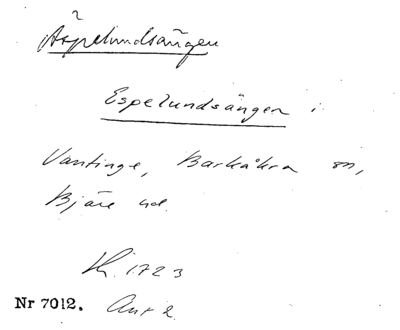 Äspelundsängen
Espelundsängen i
Vantinge, Barkåkra sn,
Bjäre hd.
Lh. 1723
Nr 7012. Ant 2.